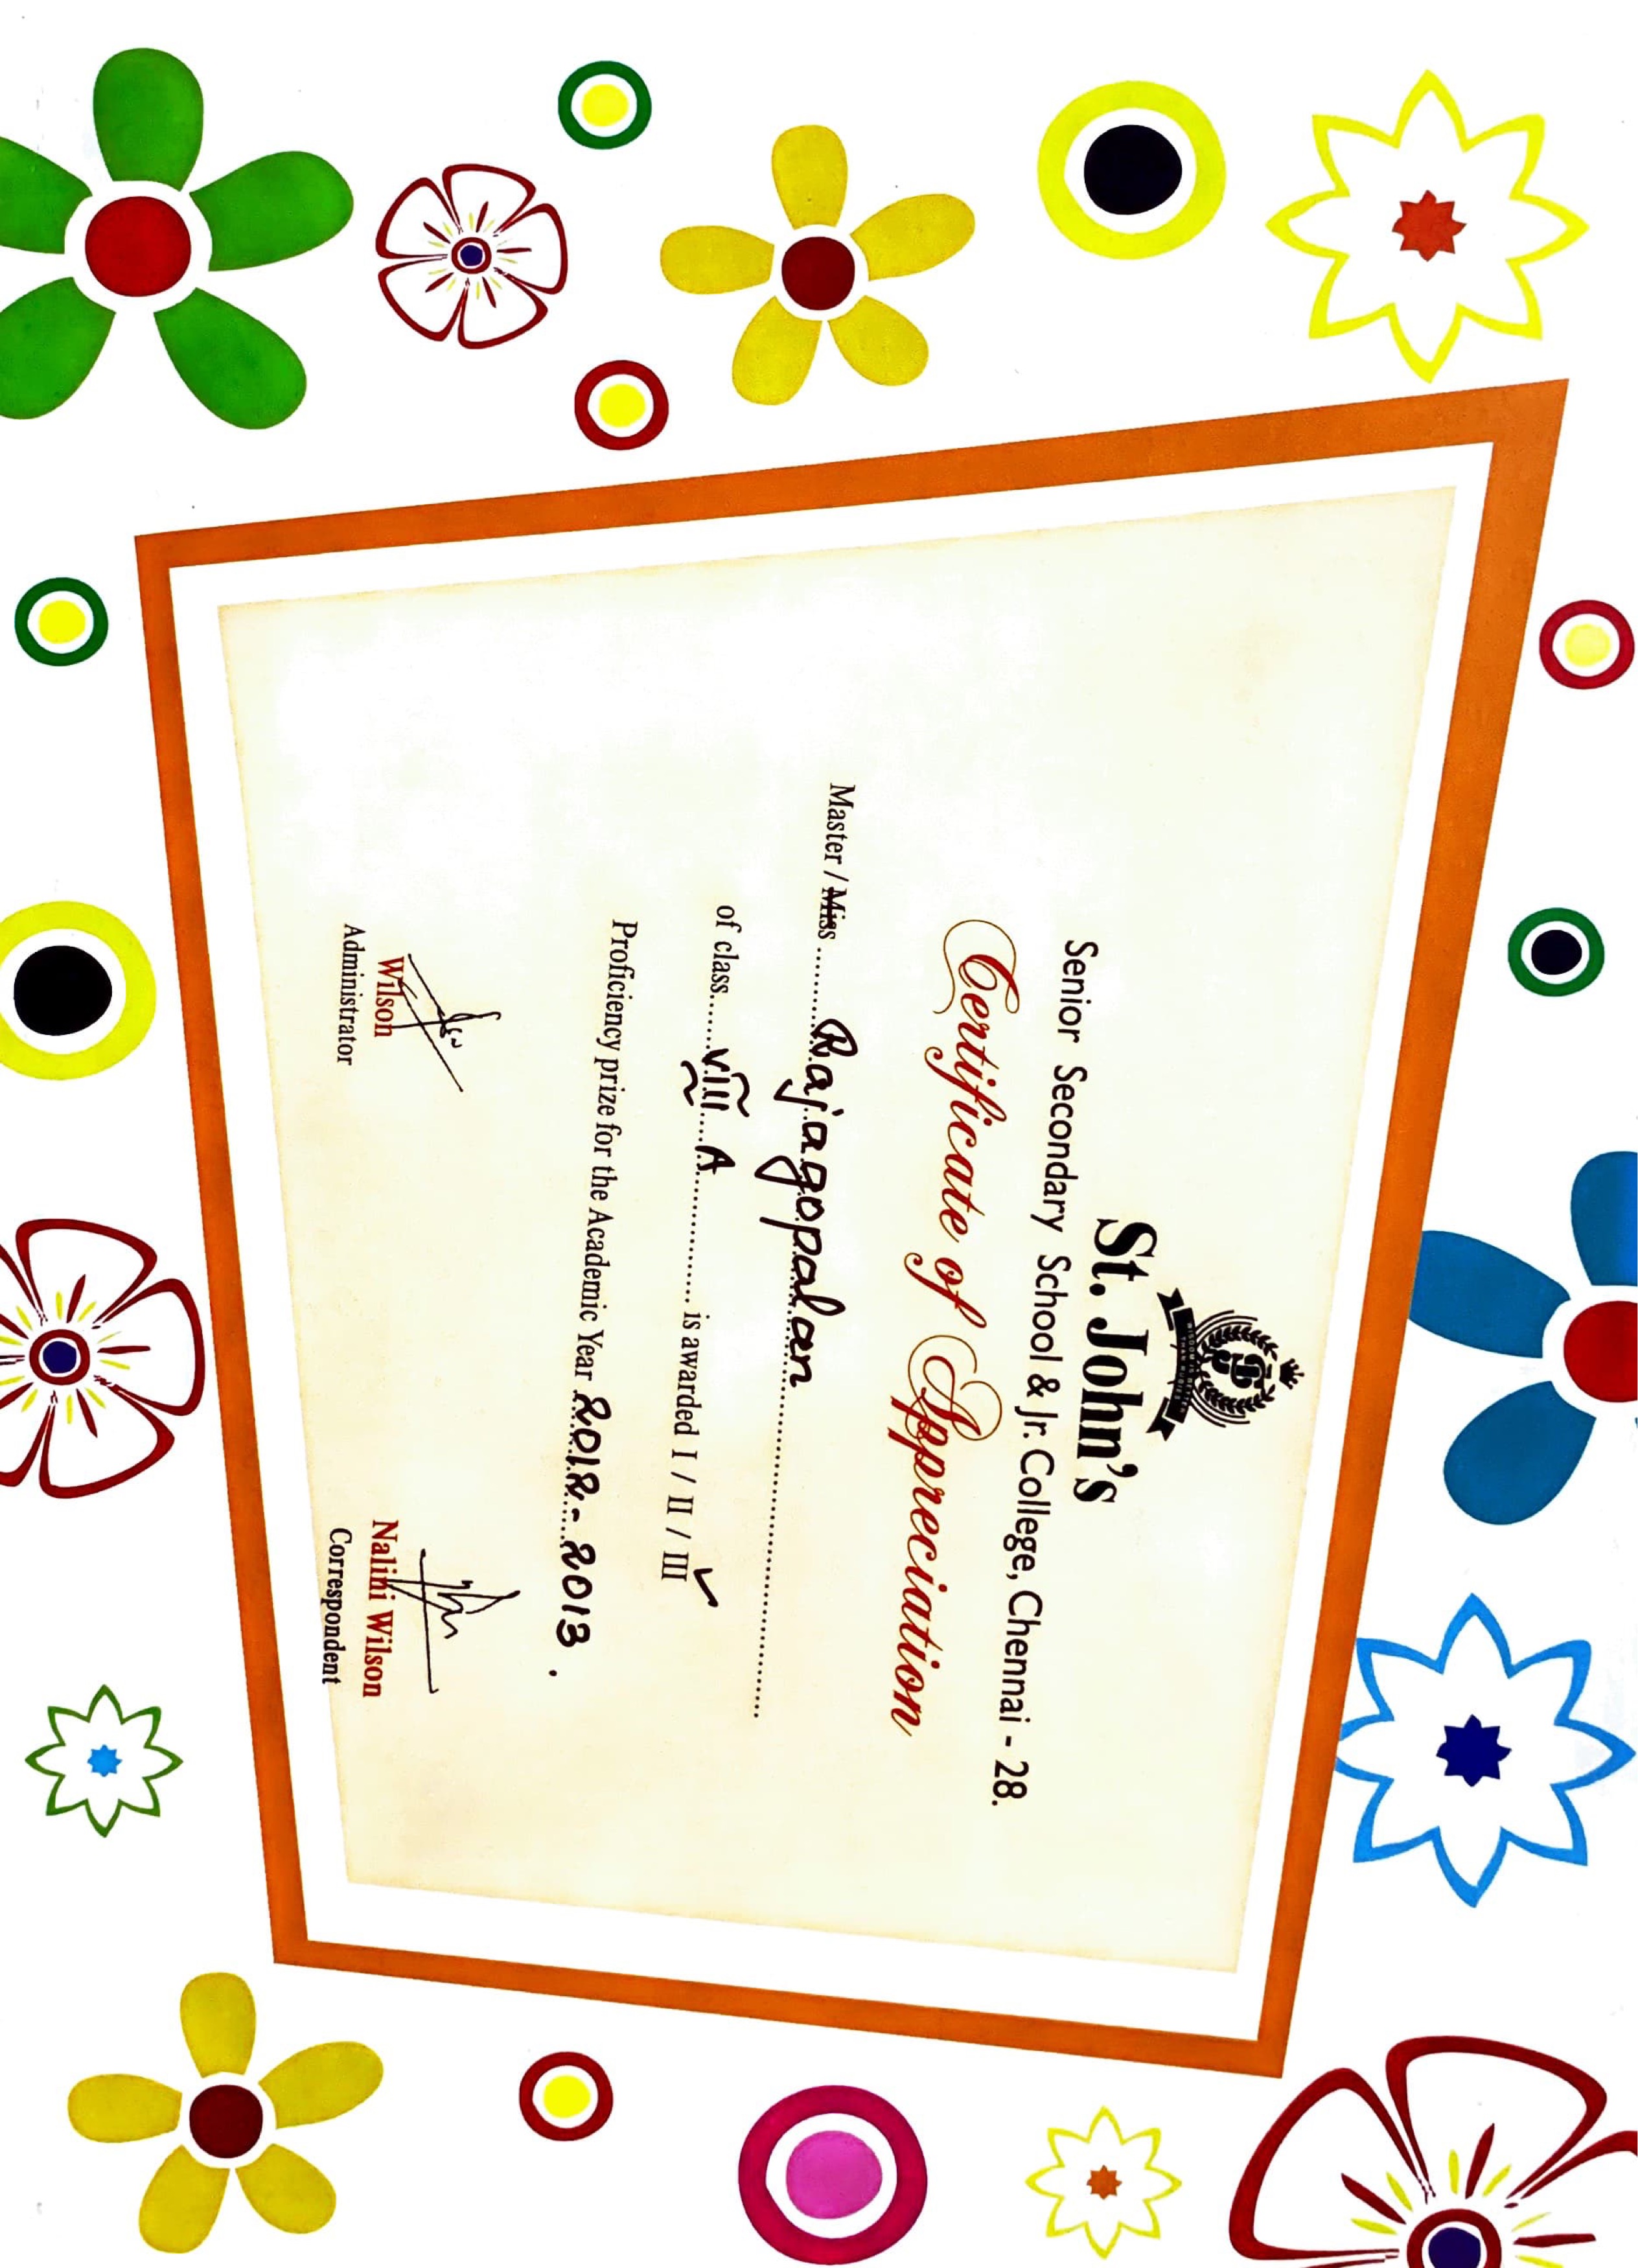 WISDOM IS BETTER
THAN RUBIES
St. John's
Senior Secondary School & Jr. College, Chennai - 28.
Certificate of Appreciation
Master / Miss ........ Rajagopalan ........
of class...... VIII A ........ is awarded I / II / III ✓
Proficiency prize for the Academic Year 2012-2013 .
Wilson
Administrator
Nalini Wilson
Correspondent